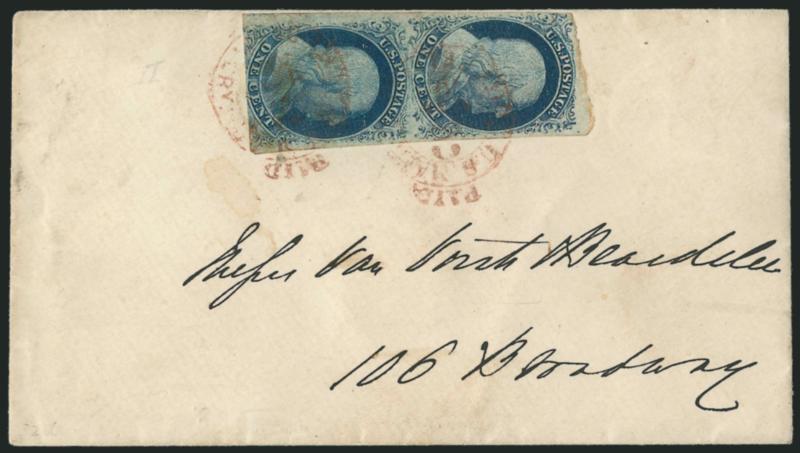 U.S. POSTAGE
ONE CENT
U.S. POSTAGE
ONE CENT
PAID
PAID
U.S. MAIL
Messrs Van Vorst & Beardslee
106 Broadway